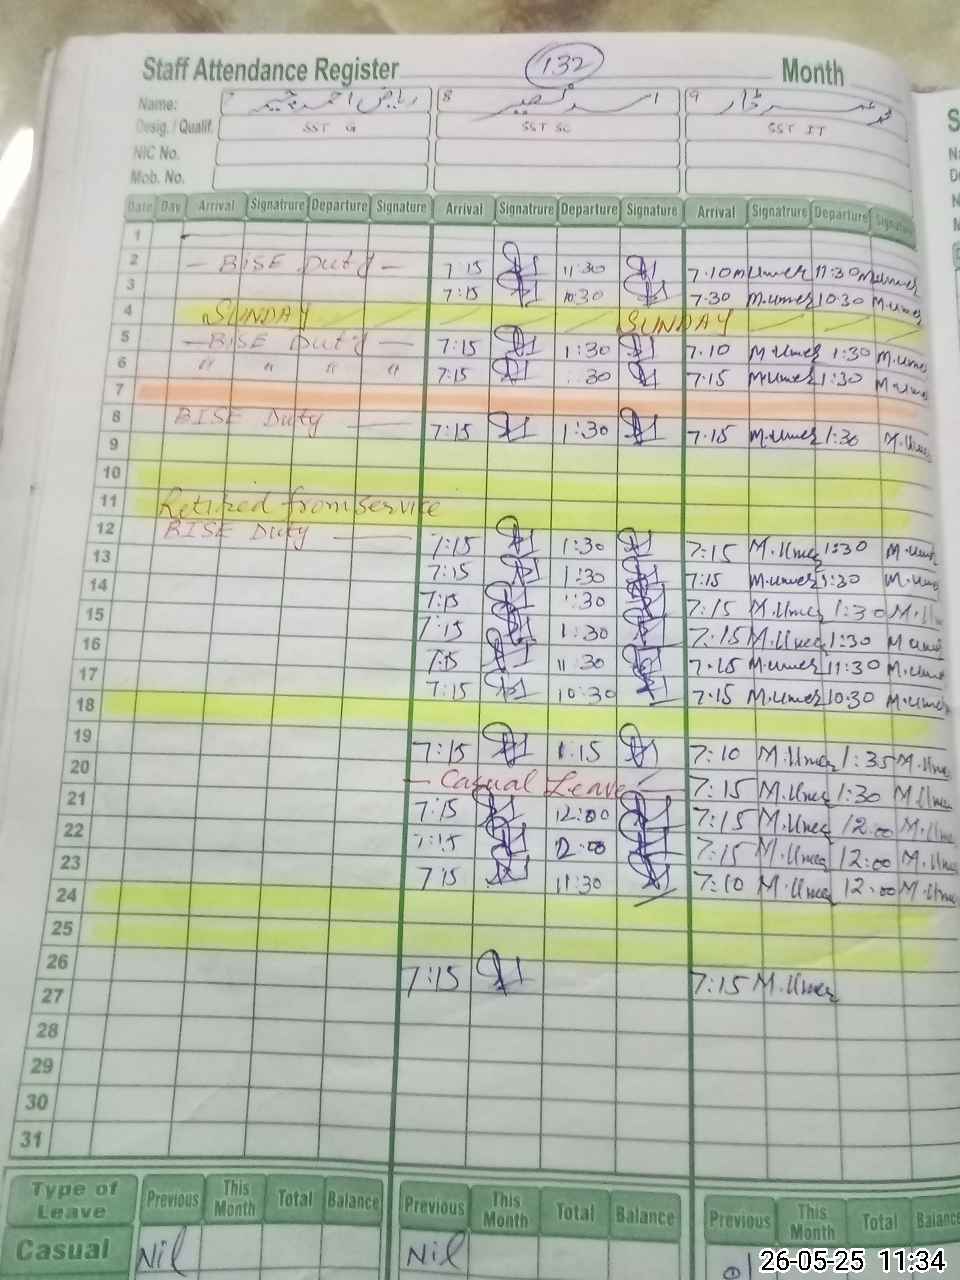 Staff Attendance Register 132 Month
Name: 7 ریاض احمد چیمہ 8 9
Desig. / Qualif. SST G SST SC SST IT
NIC No.
Mob. No.
Date Day Arrival Signatrure Departure Signature Arrival Signatrure Departure Signature Arrival Signatrure Departure Signature
1
2 — BISE Duty — 7:15 11:30 7.10 M.Umer 11:30 M.Umer
3 7:15 10:30 7.30 M.Umer 10:30 M.Umer
4 SUNDAY SUNDAY
5 — BISE Duty — 7:15 1:30 7.10 M.Umer 1:30 M.Umer
6 " " " " 7:15 :30 7.15 M.Umer 1:30 M.Umer
7
8 BISE Duty — 7:15 1:30 7.15 M.Umer 1:30 M.Umer
9
10
11 Retired from service
12 BISE Duty — 7:15 1:30 7:15 M.Umer 1:30 M.Umer
13 7:15 1:30 7:15 M.Umer 1:30 M.Umer
14 7:15 1:30 7:15 M.Umer 1:30 M.Umer
15 7:15 1:30 7:15 M.Umer 1:30 M.Umer
16 7:15 11:30 7.15 M.Umer 11:30 M.Umer
17 7:15 10:30 7.15 M.Umer 10:30 M.Umer
18
19 7:15 1:15 7:10 M.Umer 1:35 M.Umer
20 — Casual Leave — 7:15 M.Umer 1:30 M.Umer
21 7:15 12:00 7:15 M.Umer 12.00 M.Umer
22 7:15 12:00 7:15 M.Umer 12:00 M.Umer
23 7:15 11:30 7:10 M.Umer 12:00 M.Umer
24
25
26 7:15 7:15 M.Umer
27
28
29
30
31
Type of Leave Previous This Month Total Balance Previous This Month Total Balance Previous This Month Total Balance
Casual Nil Nil
26-05-25 11:34